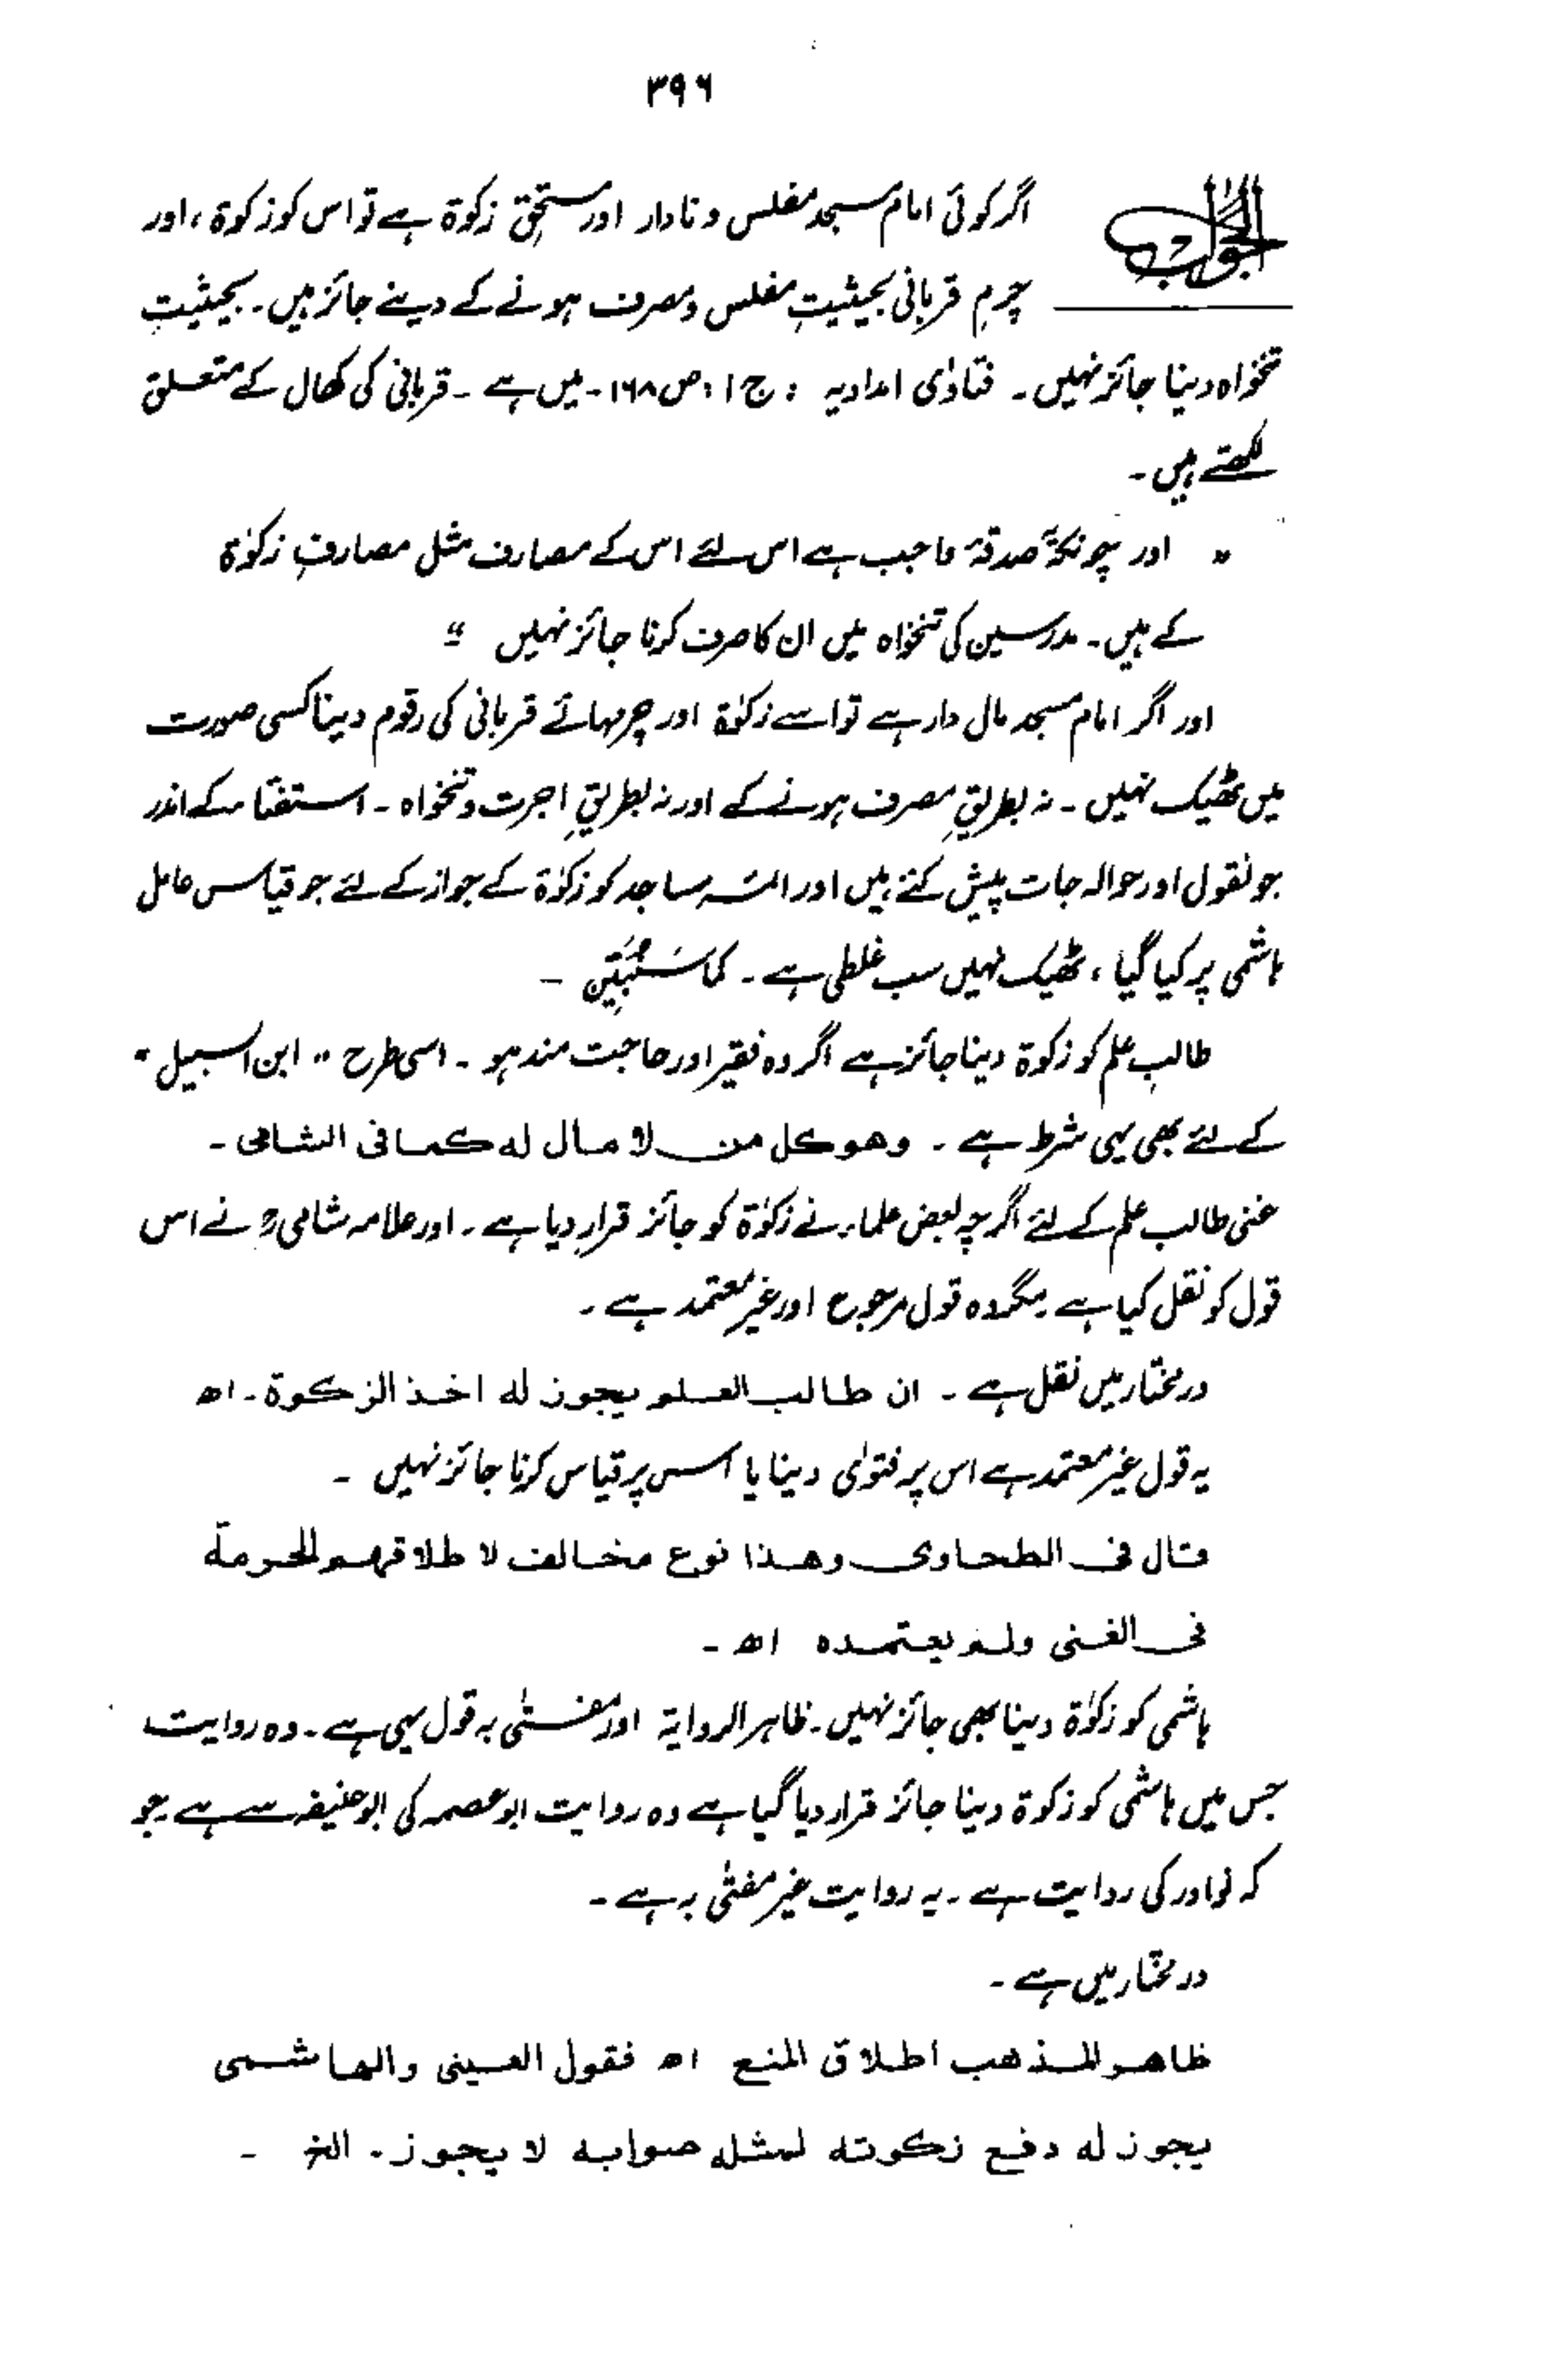 ۳۹۶
الجواب
اگر کوئی امام مسجد مفلس و نادار اور مستحقِ زکوٰۃ ہے تو اس کو زکوٰۃ، اور
چرمِ قربانی بحیثیتِ مفلس و مصرف ہونے کے دینے جائز ہیں۔ بحیثیتِ
تنخواہ دینا جائز نہیں۔ فتاوٰی امدادیہ : ج ۱ : ص ۱۶۸۔ میں ہے ۔ قربانی کی کھال کے متعلق
لکھتے ہیں۔
" اور چونکہ صدقہ واجب ہے اس لئے اس کے مصارف مثل مصارفِ زکوٰۃ
کے ہیں۔ مدرسین کی تنخواہ میں ان کا صرف کرنا جائز نہیں "
اور اگر امام مسجد مال دار ہے تو اسے زکوٰۃ اور چرمہائے قربانی کی رقوم دینا کسی صورت
میں ٹھیک نہیں۔ نہ بطریقِ مصرف ہونے کے اور نہ بطریقِ اجرت و تنخواہ ۔ استفتا کے اندر
جو نقول اور حوالہ جات پیش کئے ہیں اور ائمہ مساجد کو زکوٰۃ کے جواز کے لئے جو قیاس عامل
ہاشمی پر کیا گیا ، ٹھیک نہیں سب غلطی ہے ۔ کما سَنُبَیِّن ۔
طالبِ علم کو زکوٰۃ دینا جائز ہے اگر وہ فقیر اور حاجت مند ہو ۔ اسی طرح " ابن السبیل "
کے لئے بھی یہی شرط ہے ۔ وھو کل من لا مال له کما فی الشامی ۔
غنی طالب علم کے لئے اگرچہ بعض علماء نے زکوٰۃ کو جائز قرار دیا ہے ۔ اور علامہ شامیؒ نے اس
قول کو نقل کیا ہے مگر وہ قول مرجوح اور غیر معتمد ہے ۔
درمختار میں نقل ہے ۔ ان طالب العلم یجوز له اخذ الزکوۃ ۔ اھ
یہ قول غیر معتمد ہے اس پر فتوٰی دینا یا اس پر قیاس کرنا جائز نہیں ۔
قال فی الطحاوی وھذا نوع مخالف لاطلاقھم الحرمة
فی الغنی ولم یعتمده اھ ۔
ہاشمی کو زکوٰۃ دینا بھی جائز نہیں ۔ ظاہر الروایۃ اور مفتٰی بہ قول یہی ہے ۔ وہ روایت
جس میں ہاشمی کو زکوٰۃ دینا جائز قرار دیا گیا ہے وہ روایت ابو عصمہ کی ابو حنیفہ سے ہے جو
کہ نوادر کی روایت ہے ۔ یہ روایت غیر مفتٰی بہ ہے ۔
درمختار میں ہے ۔
ظاهر المذهب اطلاق المنع اھ فقول العینی والهاشمی
یجوز له دفع زکوته لمثله صوابه لا یجوز ۔ الخ ۔